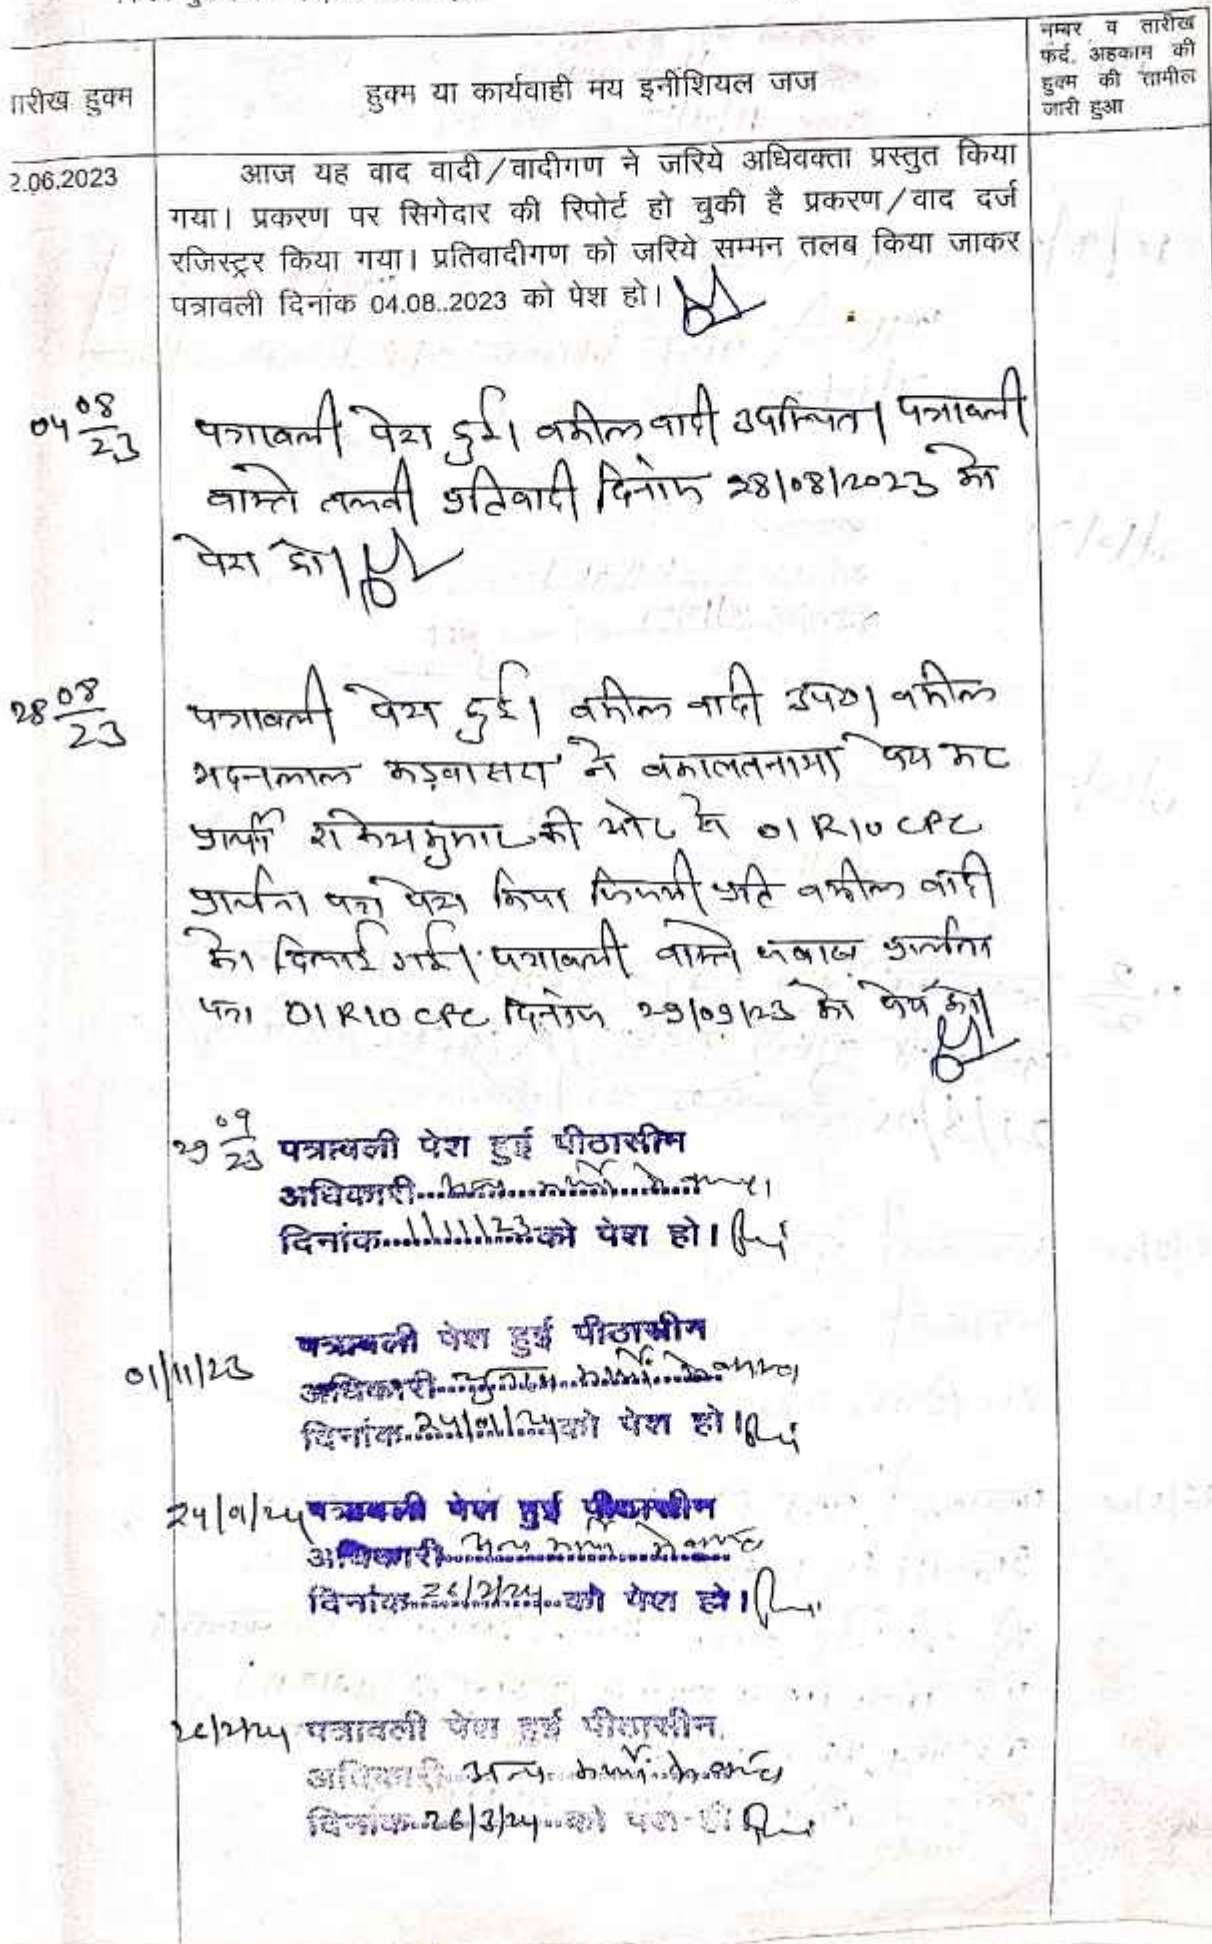 तारीख हुक्म
हुक्म या कार्यवाही मय इनीशियल जज
नम्बर व तारीख
फर्द, अहकाम की
हुक्म की तामील
जारी हुआ
2.06.2023
आज यह वाद वादी/वादीगण ने जरिये अधिवक्ता प्रस्तुत किया
गया। प्रकरण पर सिगेदार की रिपोर्ट हो चुकी है प्रकरण/वाद दर्ज
रजिस्ट्रर किया गया। प्रतिवादीगण को जरिये सम्मन तलब किया जाकर
पत्रावली दिनांक 04.08..2023 को पेश हो।
04 08/23 पत्रावली पेश हुई। वकील वादी उपस्थित। पत्रावली
वास्ते तलबी प्रतिवादी दिनांक 28/08/2023 को
पेश हो।
28 08/23 पत्रावली पेश हुई। वकील वादी उप0। वकील
मदनलाल कड़वासरा ने वकालतनामा पेश कर
प्रार्थी राकेशकुमार की ओर से 01 R10 CPC
प्रार्थना पत्र पेश किया जिसकी प्रति वकील वादी
को दिलाई गई। पत्रावली वास्ते जवाब प्रार्थना
पत्र 01R10 CPC दिनांक 29/09/23 को पेश हो।
29 09/23 पत्रावली पेश हुई पीठासीन
अधिकारी अन्य कार्यो मे
दिनांक 1/11/23 को पेश हो।
01/11/23 पत्रावली पेश हुई पीठासीन
अधिकारी कार्यो मे
दिनांक 24/01/24 को पेश हो।
24/01/24 पत्रावली पेश हुई पीठासीन
अधिकारी अन्य कार्यो मे
दिनांक 26/2/24 को पेश हो।
26/2/24 पत्रावली पेश हुई पीठासीन
अधिकारी अन्य कार्यो मे
दिनांक 26/3/24 को पेश हो